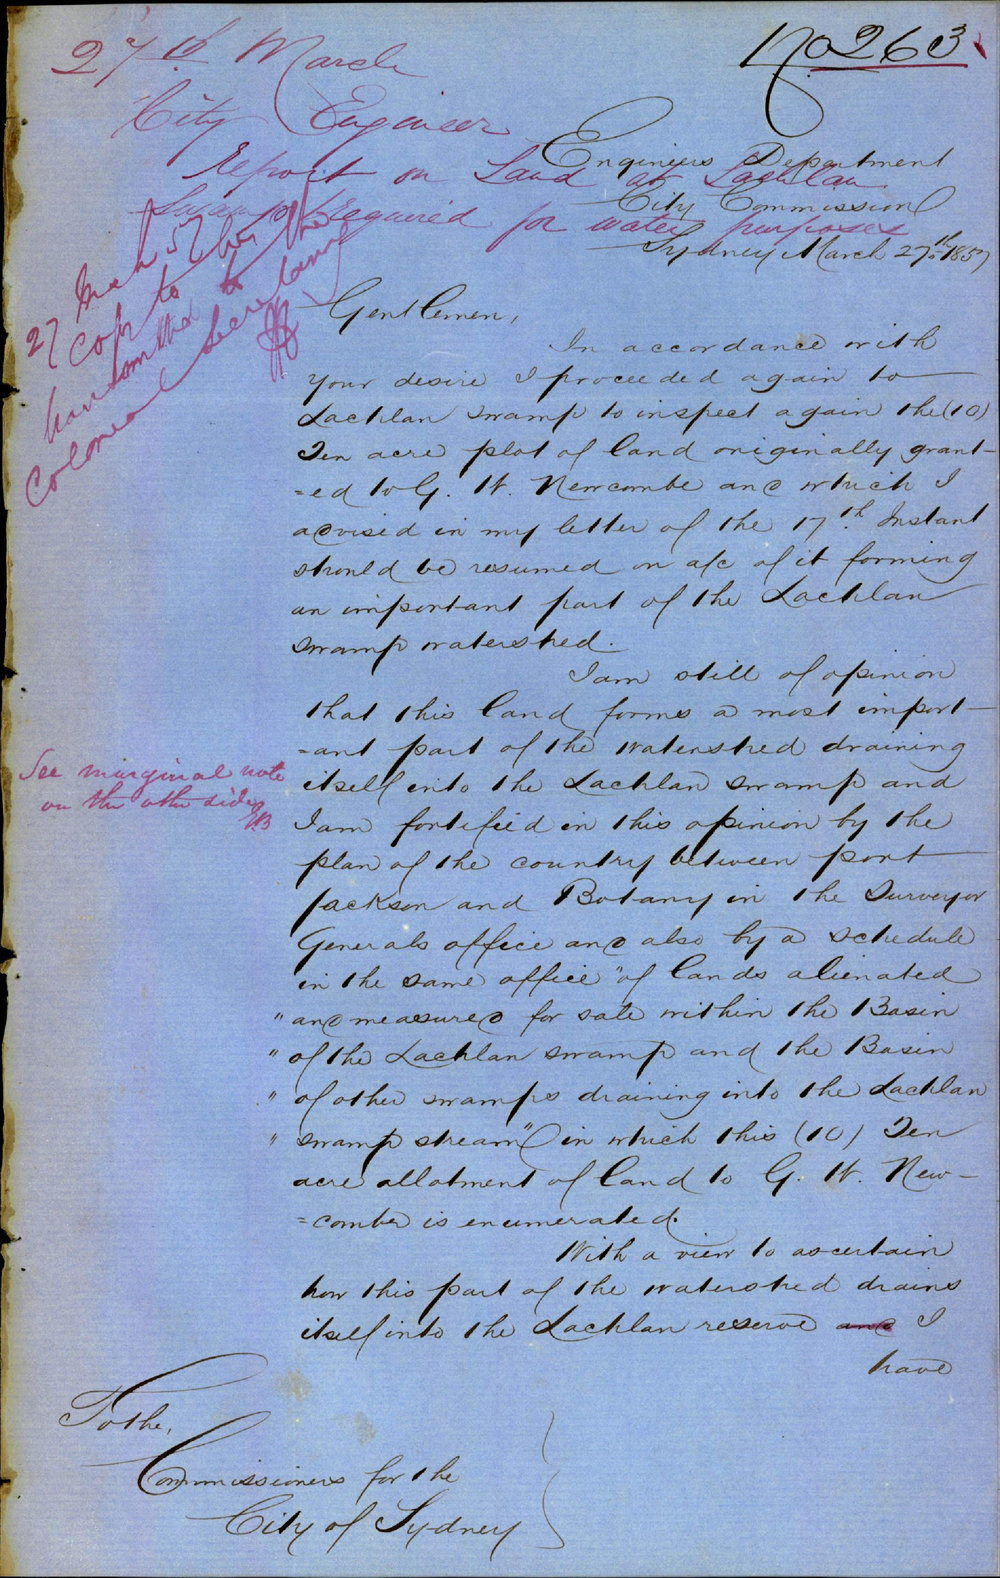 No 263
27th March
City Engineer
Report on Land at Lachlan
Swamp required for water purposes
Engineers Department
City Commission
Sydney March 27th 1857
27 Mch 57
Copy to be
transmitted to the
Colonial Secretary
Gentlemen,
In accordance with
your desire I proceeded again to
Lachlan swamp to inspect again the (10)
Ten acre plot of land originally grant-
=ed to G. W. Newcombe and which I
advised in my letter of the 17th Instant
should be resumed on a/c of it forming
an important part of the Lachlan
swamp watershed.
I am still of opinion
that this land forms a most import-
=ant part of the watershed draining
itself into the Lachlan swamp and
I am fortified in this opinion by the
plan of the country between port
Jackson and Botany in the Surveyor
Generals office and also by a schedule
in the same office "of lands alienated
" and measured for sale within the Basin
" of the Lachlan swamp and the Basin
" of other swamps draining into the Lachlan
" swamp stream" (in which this (10) Ten
acre allotment of land to G. W. New-
=combe is enumerated.
With a view to ascertain
how this part of the watershed drains
itself into the Lachlan reserve and I
have
See marginal note
on the other side
To the,
Commissioners for the
City of Sydney